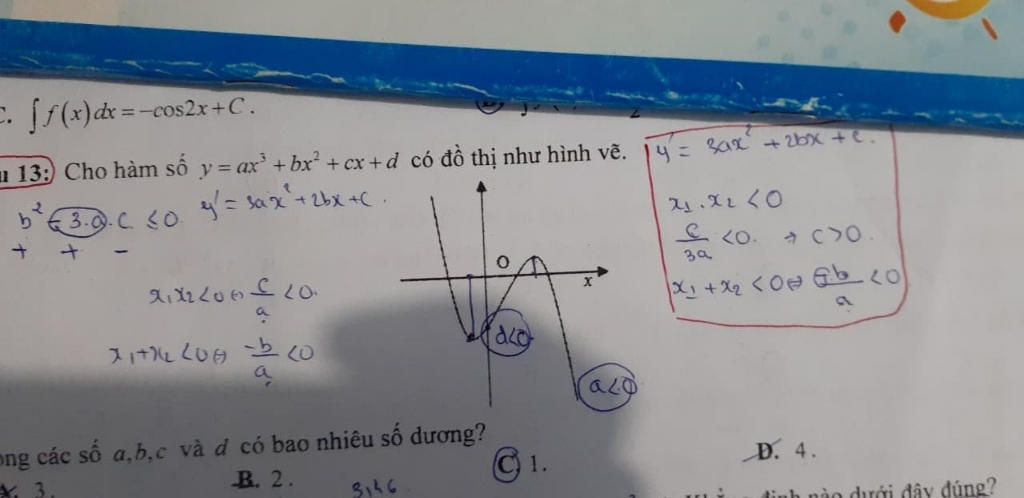 C. ∫f(x)dx = -cos2x + C.
u 13: Cho hàm số y = ax³ + bx² + cx + d có đồ thị như hình vẽ.
y' = 3ax² + 2bx + c.
b² - 3.a.c ≤ 0
y' = 3ax² + 2bx + c.
+ + -
x₁.x₂ < 0
c/3a < 0. → c > 0.
x₁x₂ < 0 ⇔ c/a < 0.
x₁ + x₂ < 0 ⇔ -b/a < 0
x₁ + x₂ < 0 ⇔ -b/a < 0
O
x
d<0
a<0
ong các số a,b,c và d có bao nhiêu số dương?
3.
B. 2.
C 1.
D. 4.
định nào dưới đây đúng?